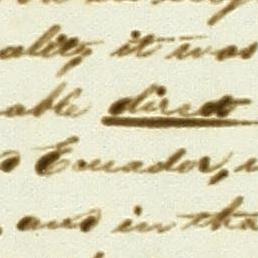 ality it was
able direct
Ecuador,
and in tha